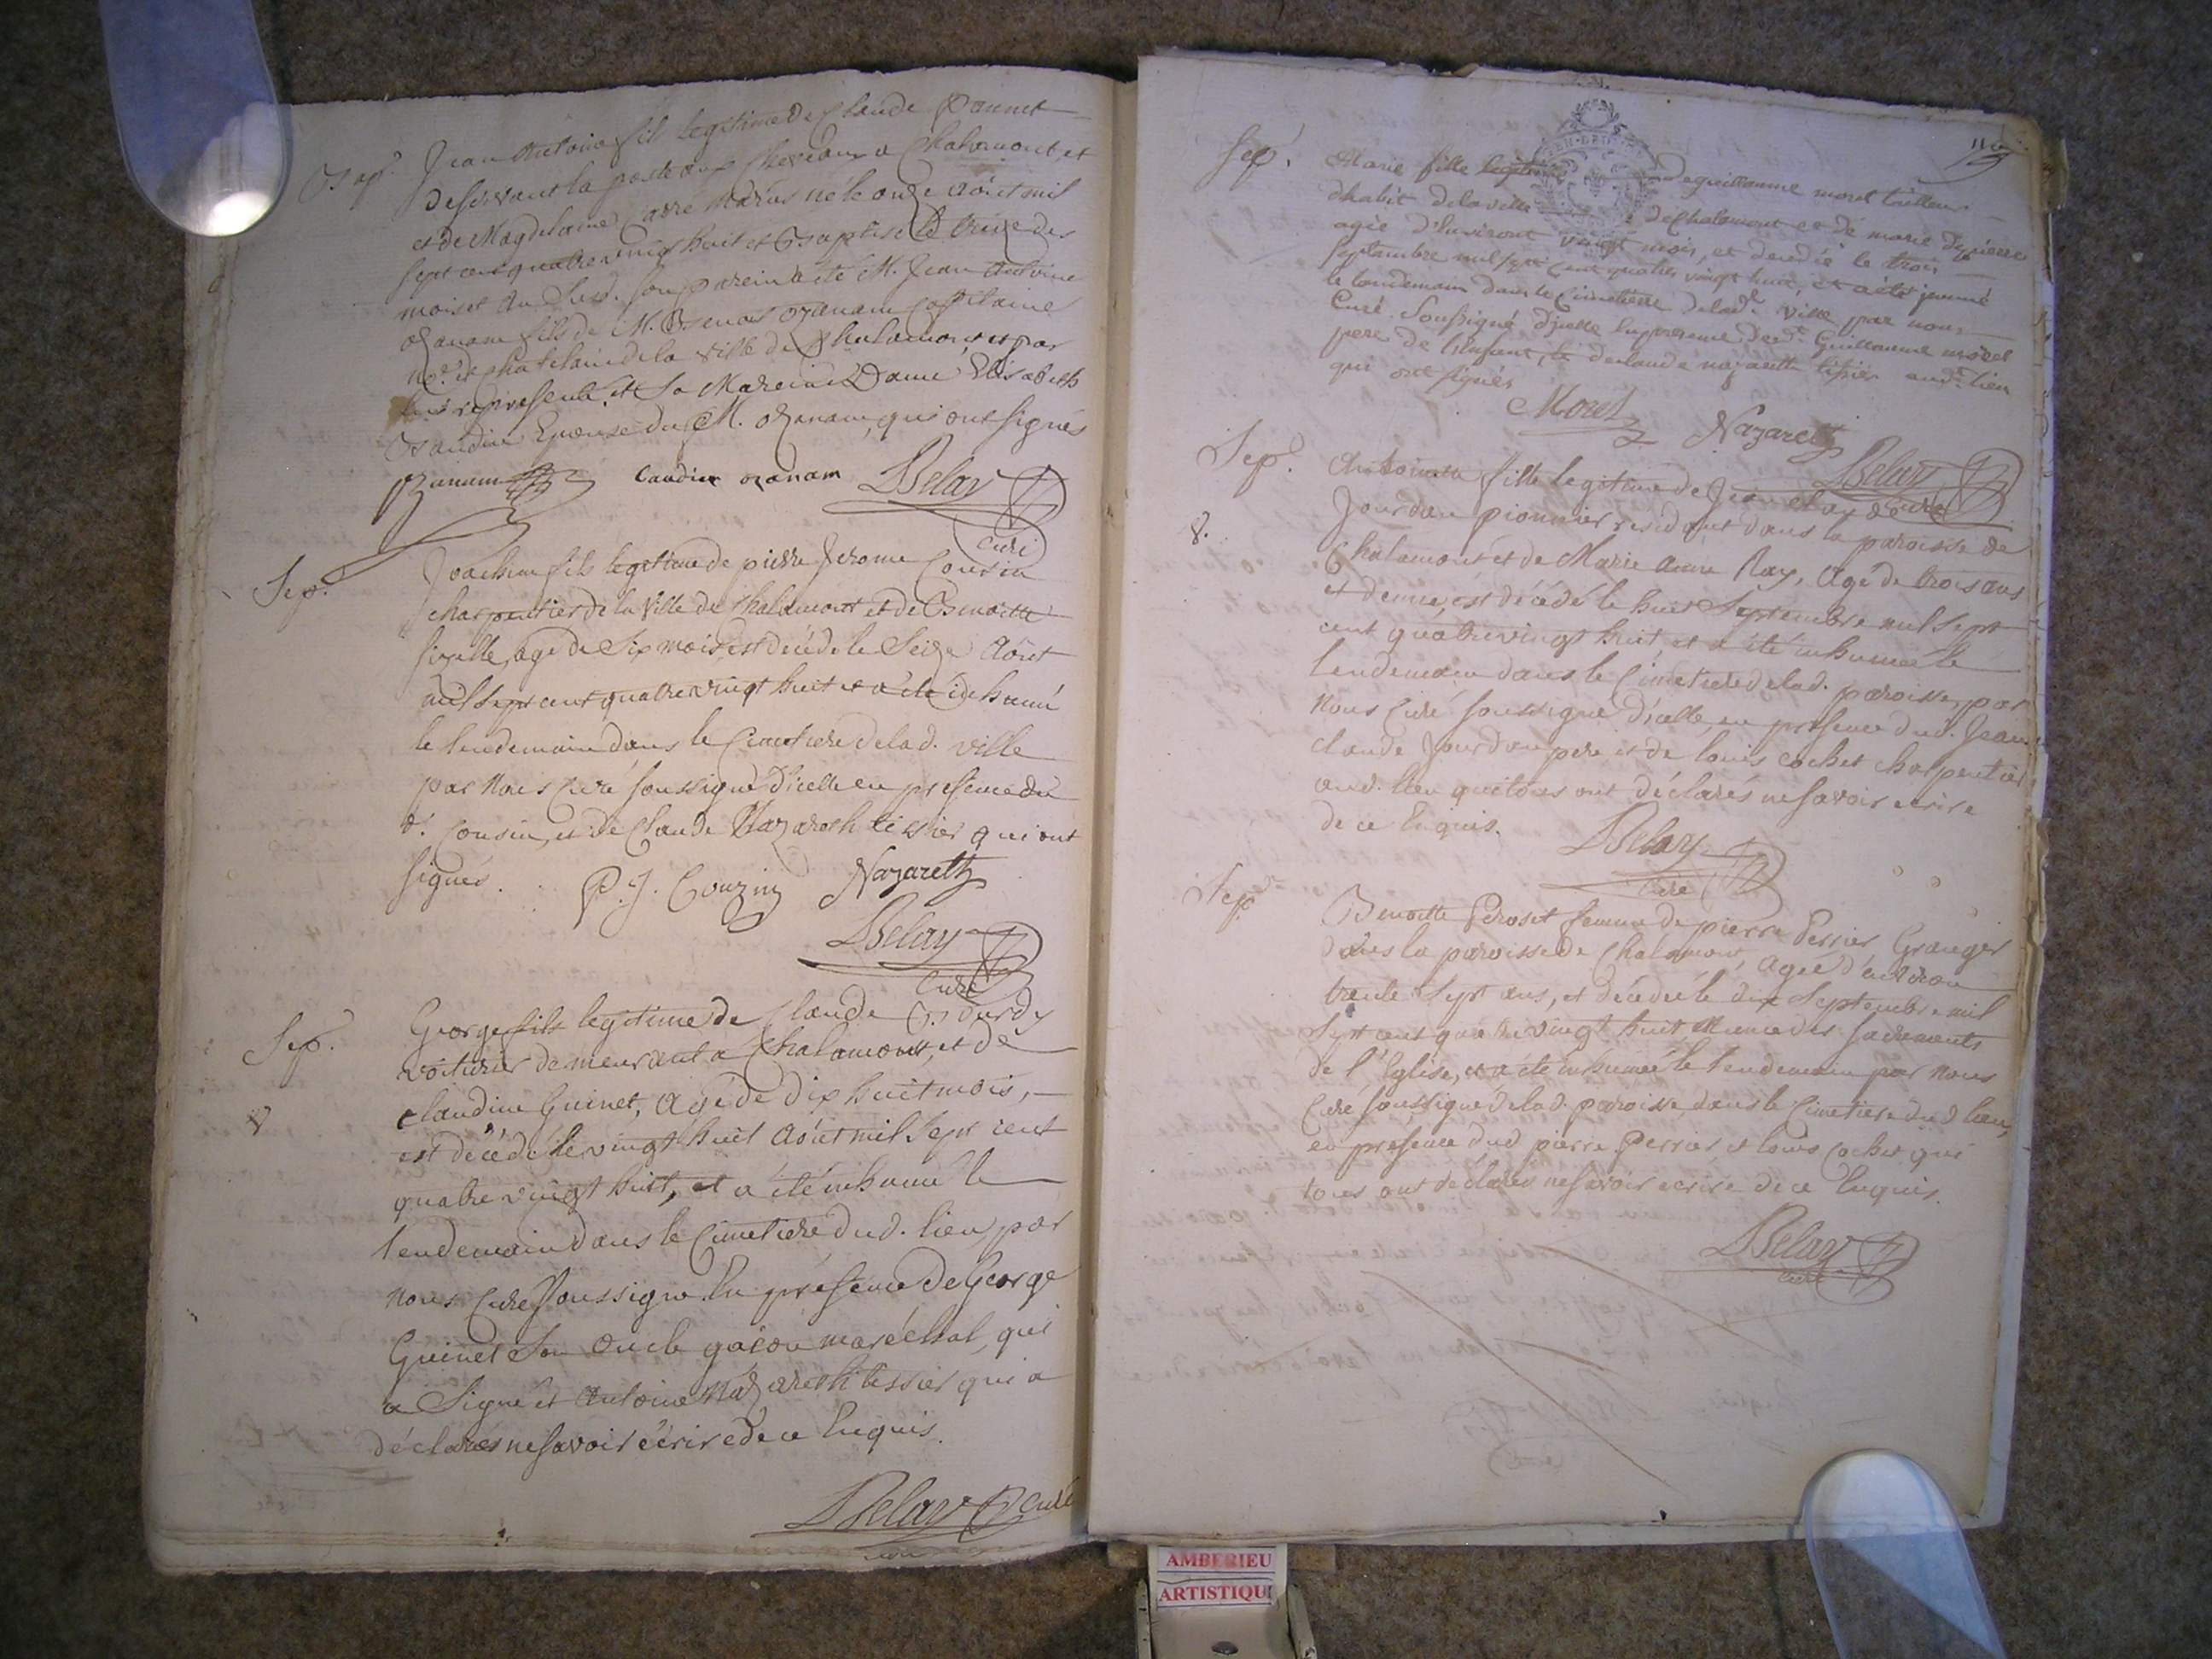 Bapt.
Jean Antoine fils legitime de Claude Ponnet
desservant la poste aux chevaux a Chalamont, et
et de Magdelaine Carre mariés né le onze août mil
sept cens quatre vingt huit et Baptisé le treize des
mois et an susd. son parein a été M. Jean Antoine
ozanam fils de M. Benois ozanam Capitaine
no.re et chatelain de la ville de Chalamont et par
lui représenté, et sa Mareine Dame Elisabeth
Baudin Epouse du M. ozanam, qui ont signés
Ozanam Baudin ozanam Delay
Curé
Sep.
Joachim fils legitime de pierre Jerome Cousin
charpentier de la Ville de Chalamont et de Benoitte
agé de Six mois, est décédé le Seize Août
mil sept cent quatre vingt huit et a été inhumé
le lendemain dans le Cimetiere de lad. ville
par Nous Curé soussigné d'icelle en présence du
d. Cousin, et de Claude Nazareth tissier qui ont
signés. P. J. Couzin Nazareth
Delay
Curé
Sep.
George fils legitime de Claude
voiturier demeurant a Chalamont, et de
claudine Guinet, Agé de dix huit mois,
est décédé le vingt huit Août mil Sept cent
quatre vingt huit, et a été inhumé le
lendemain dans le Cimetiere dud. lieu par
nous Curé soussigné En présence de George
Guinet son oncle garçon maréchal, qui
a Signé et Antoine Nazareth tissier qui a
déclarés ne savoir écrire de ce Enquis.
Delay Curé
Sep.
Marie fille legitime de guillaume morel tailleur
dhabit de la ville de Chalamont et de marie dupierre
agée d'Environt vingt mois, et decedée le trois
Septembre mil sept cent quatres vingt huit, et a été inumé
le lendemain dans le Cimetière de lad.e Ville par nous
Curé Soussigné d'icelle En presence dud.t Guillaume morel
pere de l'Enfant, et de claude nazareth tissier aud.t lieu
qui ont signés
Morel Nazareth
Delay
Curé
Sep.
8.
Antoinette fille legitime de Jean claude
Jourdan pionnier residant dans la paroisse de
Chalamont et de Marie Anne Ray, Agé de trois ans
et demie, est décédé le huit Septembre mil sept
cent quatre vingt huit, et a été inhumée le
lendemain dans le Cimetiere de lad. paroisse, par
Nous Curé soussigné d'icelle, en présence dud. Jean
claude Jourdan pere et de louis cochet charpentier
aud. lieu qui tous ont déclarés ne savoir ecrire
de ce Enquis. Delay
Curé
Sep.
Benoitte Peroset femme de pierre Perrier Granger
dans la paroisse de Chalamont, Agée d'environ
trente Sept ans, et décédée le dix Septembre mil
Sept cent quatre vingt huit, Munie des sacrements
de l'Eglise, et a été inhumée le lendemain par nous
Curé soussigné de lad. paroisse dans le Cimetiere dud lieu,
en présence dud pierre Perrier, et louis cochet qui
tous ont déclarés ne savoir ecrire de ce Enquis.
Delay
Curé
AMBERIEU
ARTISTIQU